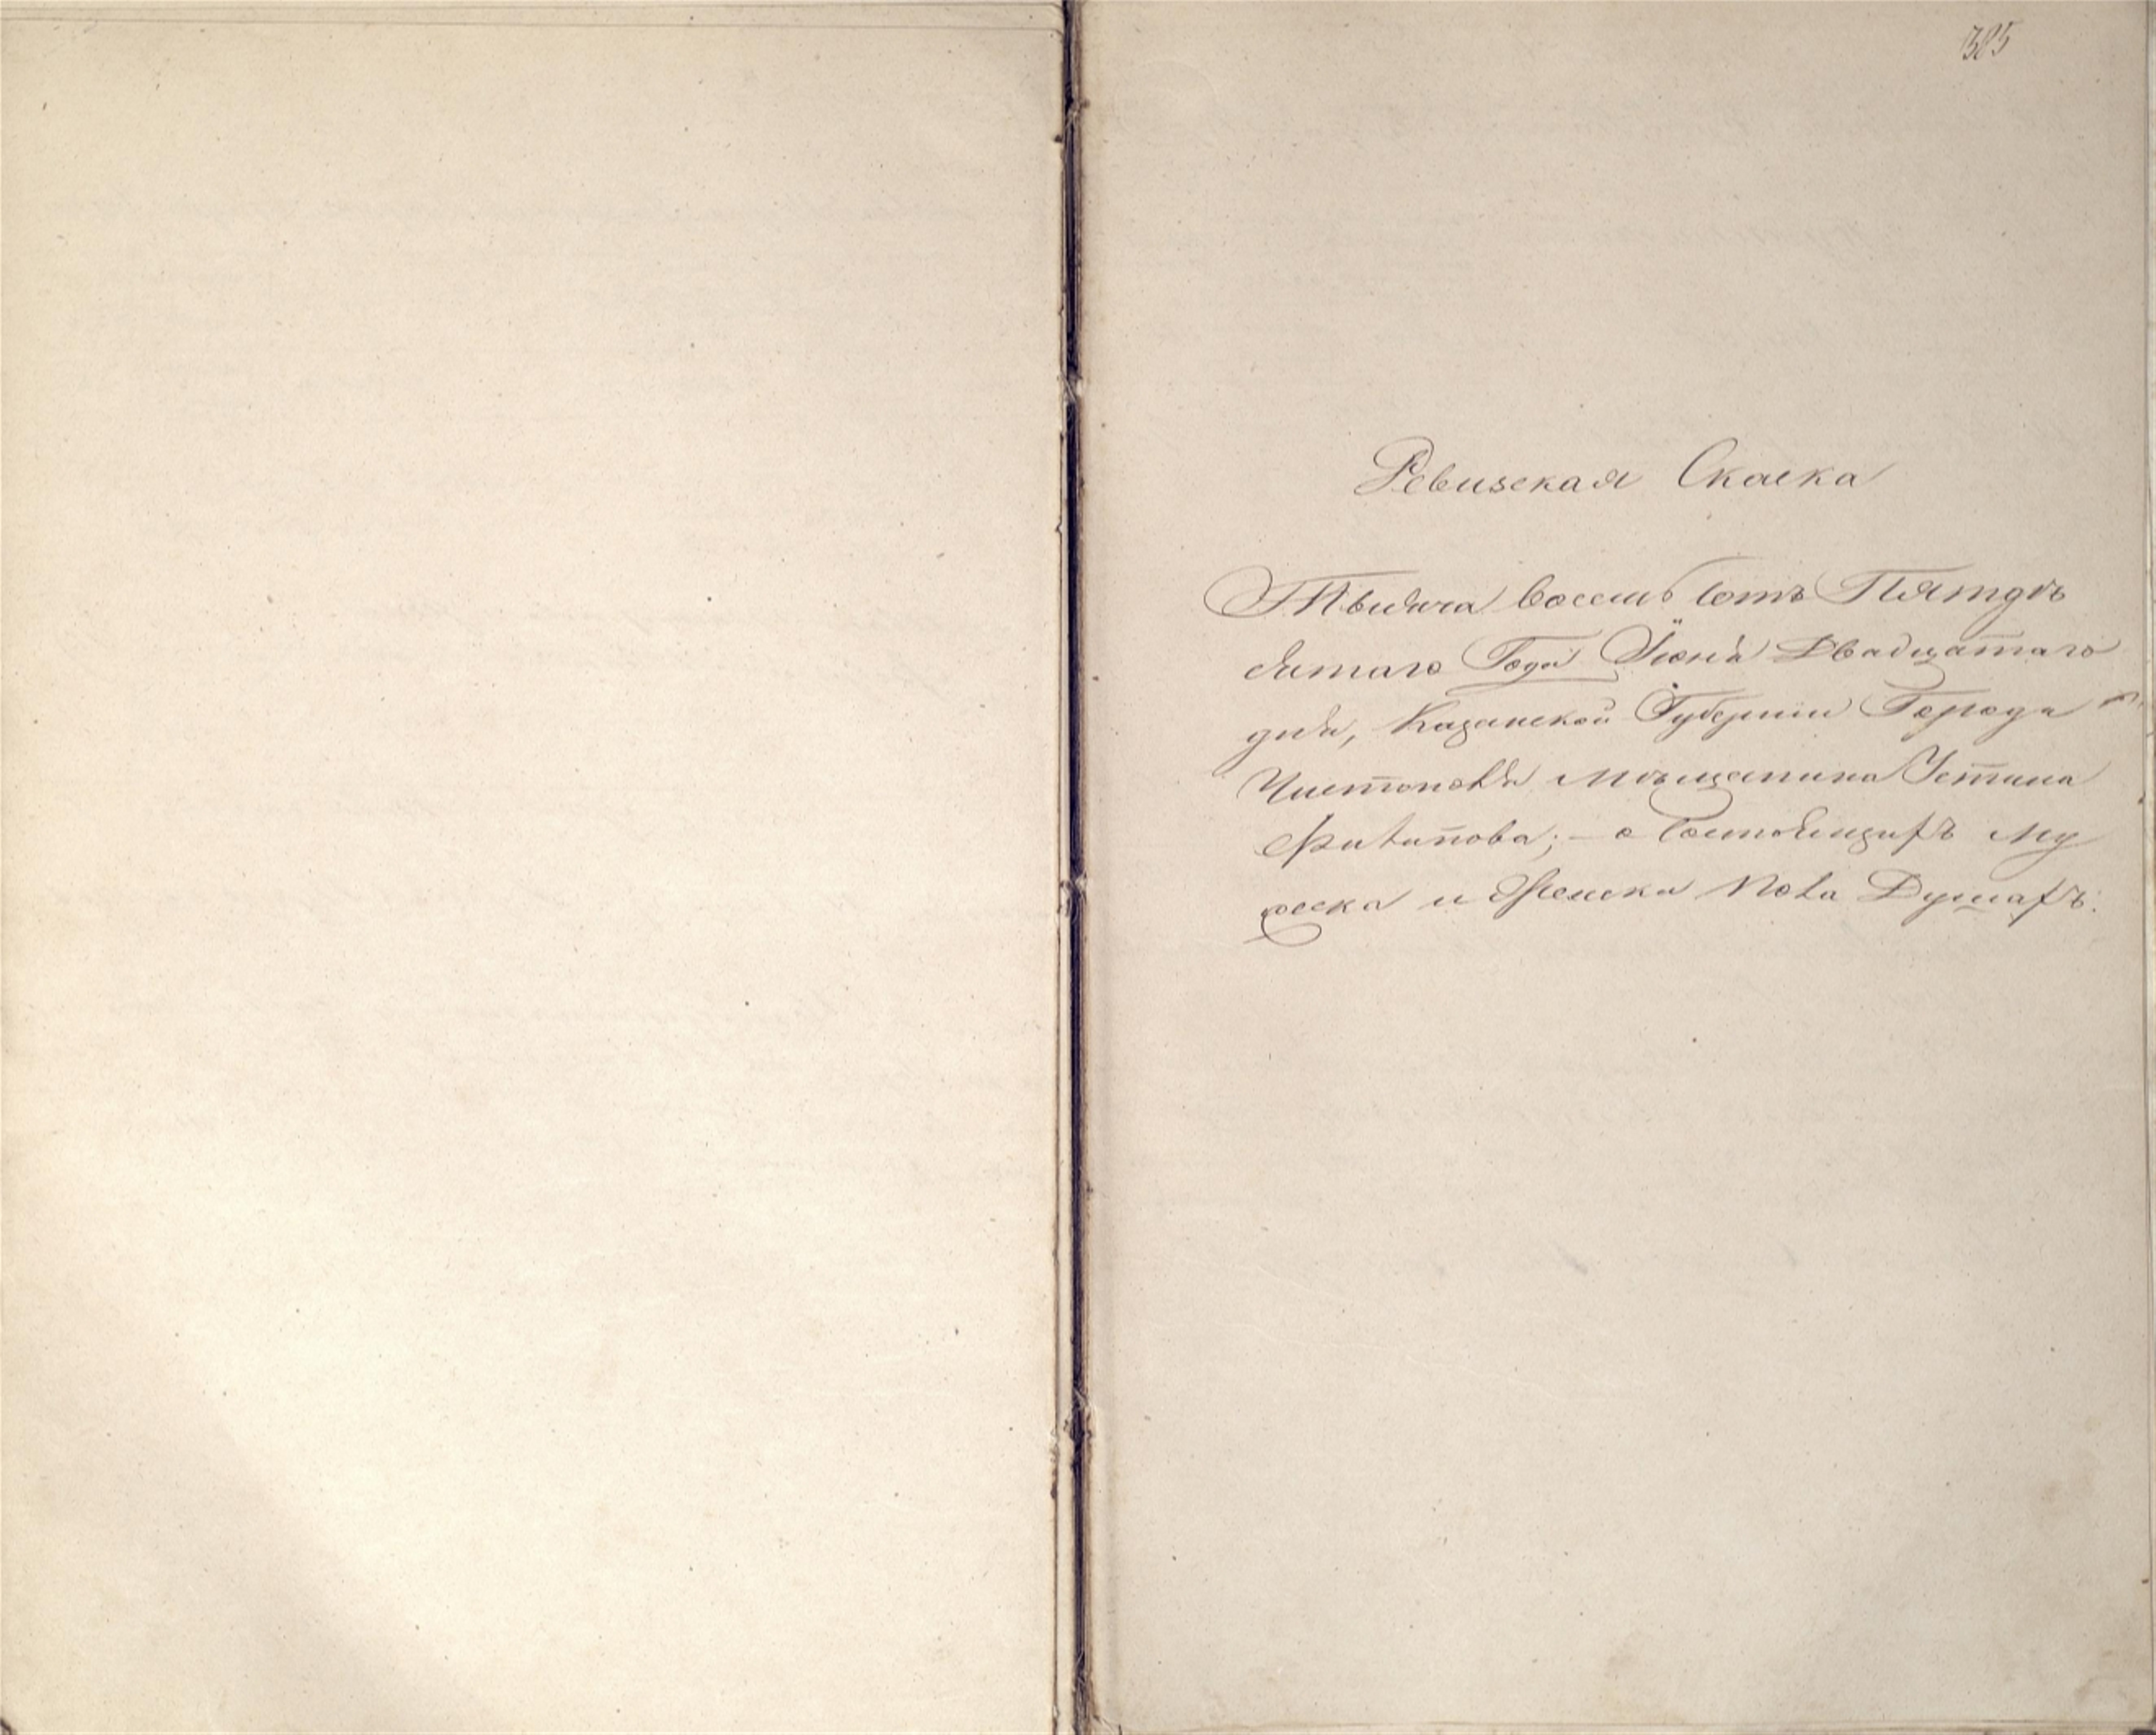 385
Ревизская Скаска
Тысяча восемь сотъ Пятдѣ
сятаго Года Іюня Двадцатаго
дня, Казанской Губерніи Города
Чистополя мѣщанина Устина
Филипова; — о состоящихъ му
жеска и Женска пола Душахъ.